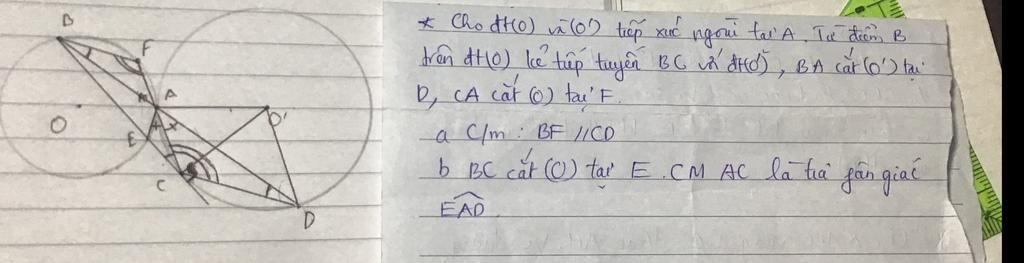 B
F
A
O
O'
E
C
D
* Cho đt(O) và (O') tiếp xúc ngoài tại A. Từ điểm B
trên đt(O) kẻ tiếp tuyến BC với đt(O'), BA cắt (O') tại
D, CA cắt (O) tại F.
a C/m : BF // CD
b BC cắt (O) tại E. CM AC là tia phân giác
EAD